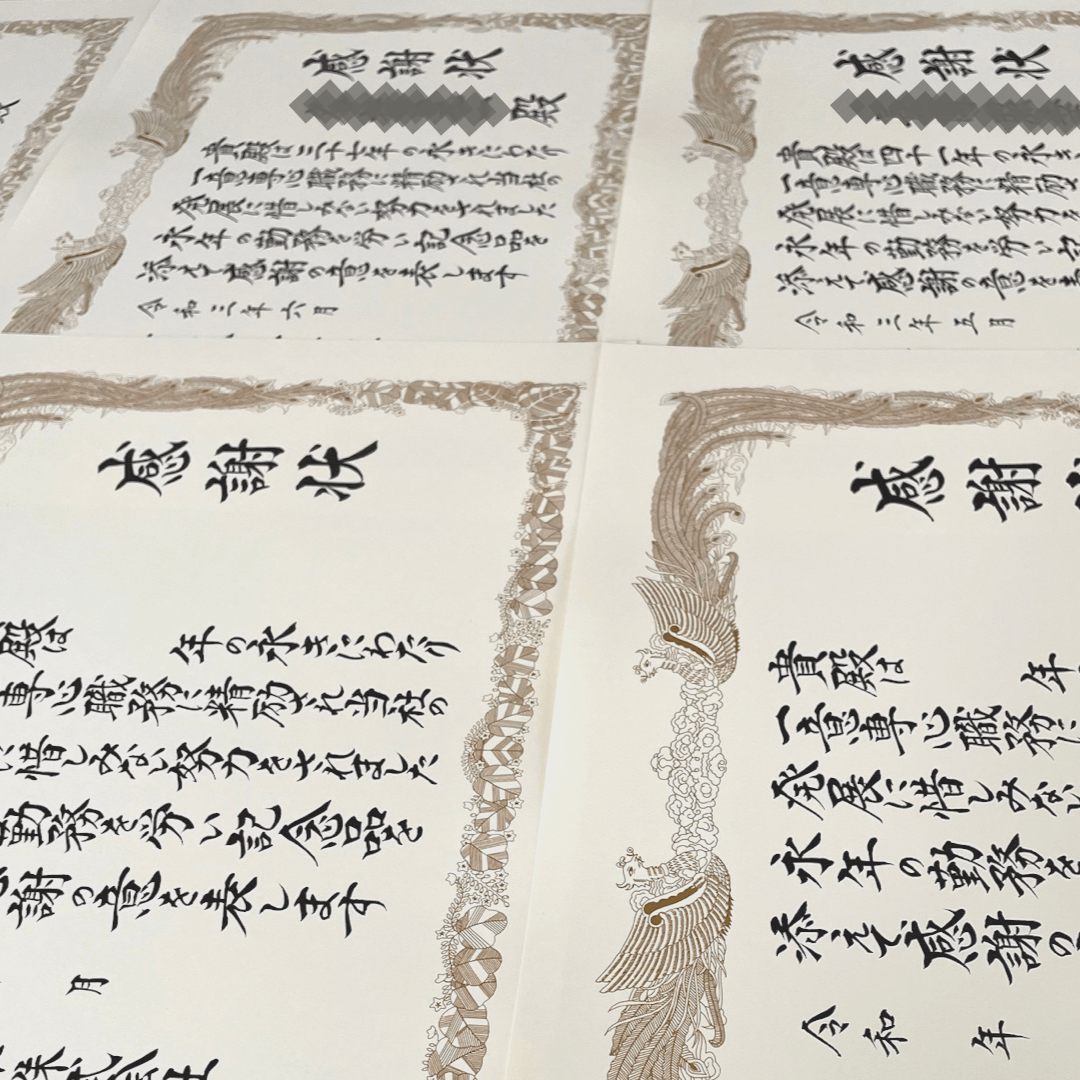 感謝状
殿
貴殿は三十七年の永きにわたり
一意専心職務に精励され当社の
発展に惜しみない努力をされました
永年の勤務を労い記念品を
添えて感謝の意を表します
令和三年六月
感謝状
貴殿は四十一年の永き
一意専心職務に精励
発展に惜しみない努力を
永年の勤務を労い
添えて感謝の意を
令和三年五月
感謝状
殿は 年の永きにわたり
専心職務に精励され当社の
に惜しみない努力をされました
勤務を労い記念品を
謝の意を表します
月
株式会社
感謝
貴殿は 年
一意専心職務に
発展に惜しみない
永年の勤務を
添えて感謝の
令和 年